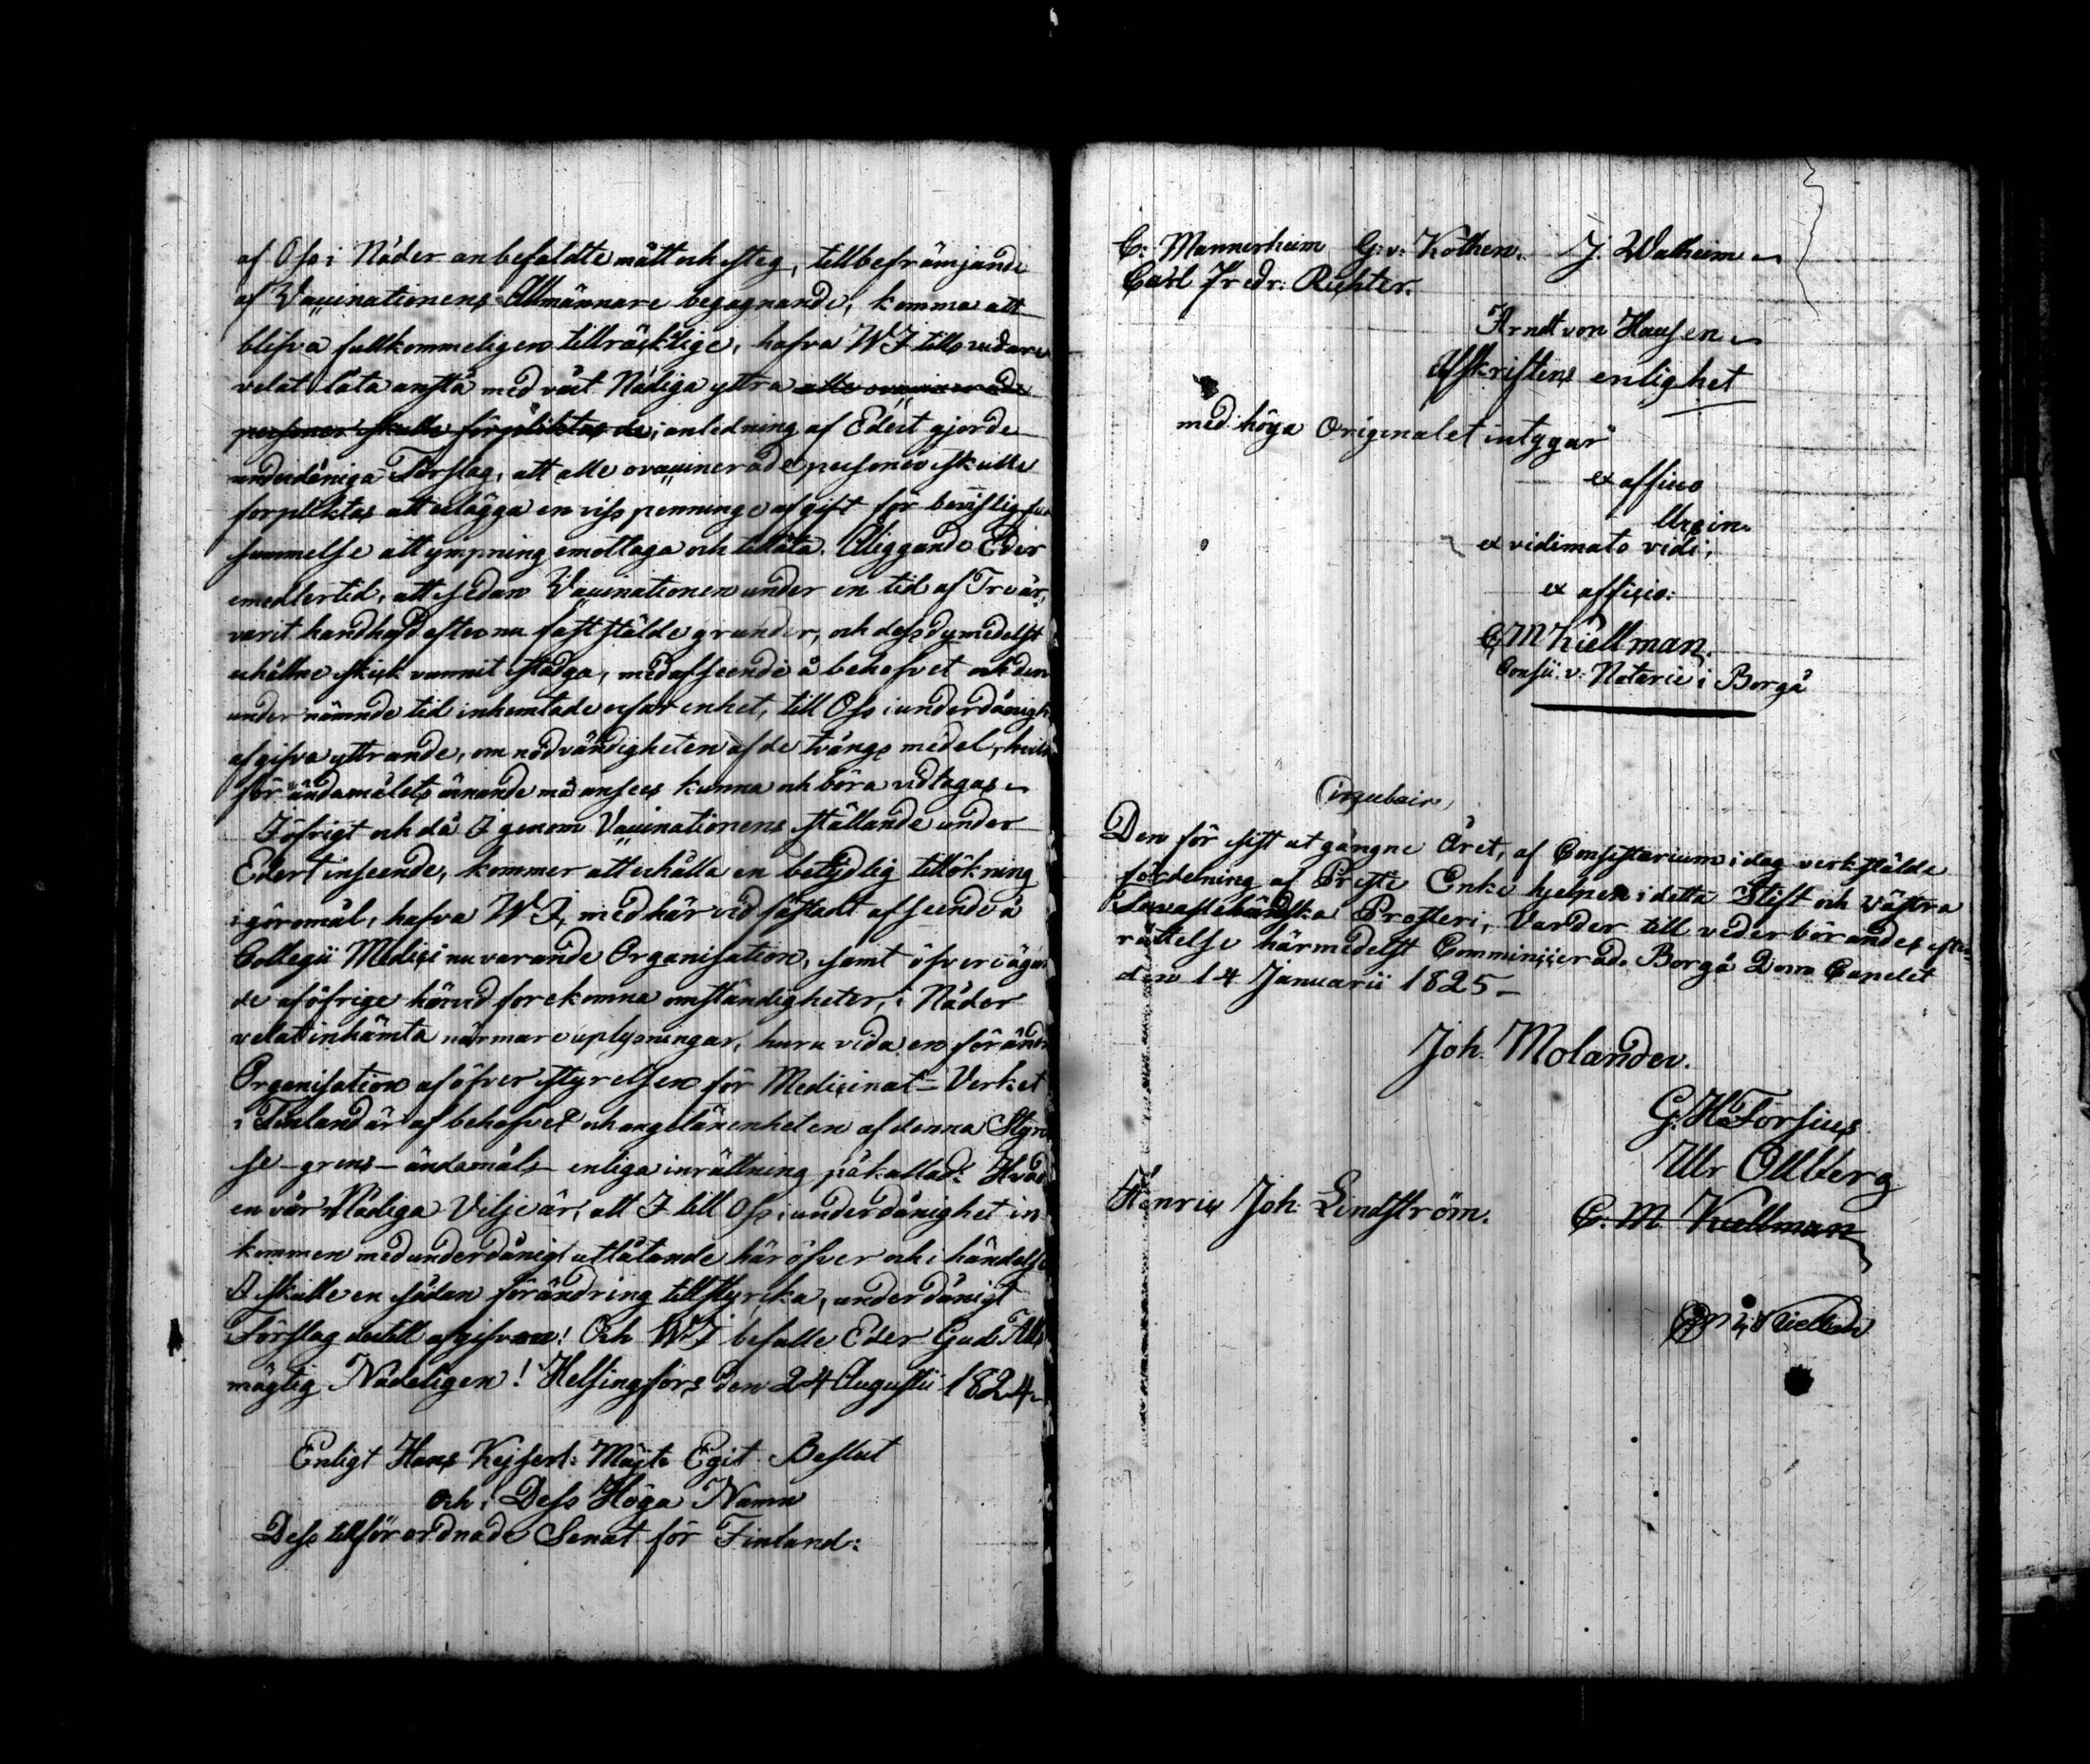 af Oss i Nåder anbefaldte mått och steg, till befrämjande
af Vaccinationens Allmännare begagnande, komma att
blifva fullkommeligen tillräcklige, hafva WI tills vidare
velat låta anstå med vårt Nådiga yttra alle ovaccinerade
personer skulle förpliktas de, i anledning af Edert gjorde
underdåniga Förslag, att alle ovaccinerade personer skulle
förpliktas att erlägga en viss penninge afgift för bevislig för
summelse att ympning emottaga och tillåta. Åliggande Eder
emedlertid, att sedan Vaccinationen under en tid af Tre år,
varit handhafd efter nu fastställde grunder, och dess dymedelst
erhållne skick vunnit stadga, med afseende å behofvet och den
under nämnde tid inhemtade erfarenhet, till Oss i underdånigh
afgifva yttrande, om nödvändigheten af de tvångs medel, hvilk
för ändamålets vinnande må anses kunna och böra vidtagas
I öfrigt och då I genom Vaccinationens ställande under
Edert inseende, kommer att erhålla en betydlig tillökning
i göromål, hafva WI, med härvid fästadt afseende å
Collegii Medici nu varande Organisation, samt öfvervägan
de af öfrige härvid forekomna omständigheter, i Nåder
velat inhämta närmare uplysningar, huru vida en förändr
Organisation af öfver styrelsen för Medicinal-Verket
i Finland är af behofvet och angelänenheten af denna Styrel
se-grens-ändamåls-enliga inrättning påkallad: Hvad
en vår Nådiga Vilje är, att I till Oss i underdånighet in
kommen med underdånigt utlåtande häröfver och i händelse
I skulle en sådan förändring tillstyrcka, underdånigt
Förslag dertill afgifven! Och WI befalle Eder Gud All
mägtig Nådeligen! Helsingfors den 24 Augustii 1824.
Enligt Hans Kejserl: Majts Egit Beslut
och i Dess Höga Namn
Dess tillförordnade Senat för Finland:
C: Mannerheim G: v: Kothen. J. Walheim
Carl Fredr: Richter.
Arndt von Hausen
Afskriftens enlighet
med höga Originalet intygar
ex officio
Ursin.
ex vidimato vidi,
ex officio:
C M Kiellman.
Consii. v: Notarie i Borgå
Circulair,
Den för sist utgångne Året, af Consistorium i dag verkstälde
fördelning af Prest Enke hjelpen i detta Stift och västra
Tavastehändska Prosteri, Varder till vederbörandes efter
rättelse härmedelst Comminicerad. Borgå Dom Capelet
den 14 Januarii 1825
Joh. Molander.
G. H. Forsius
Ulr Ollberg
Henric Joh. Lindström. C. M. Kiellman